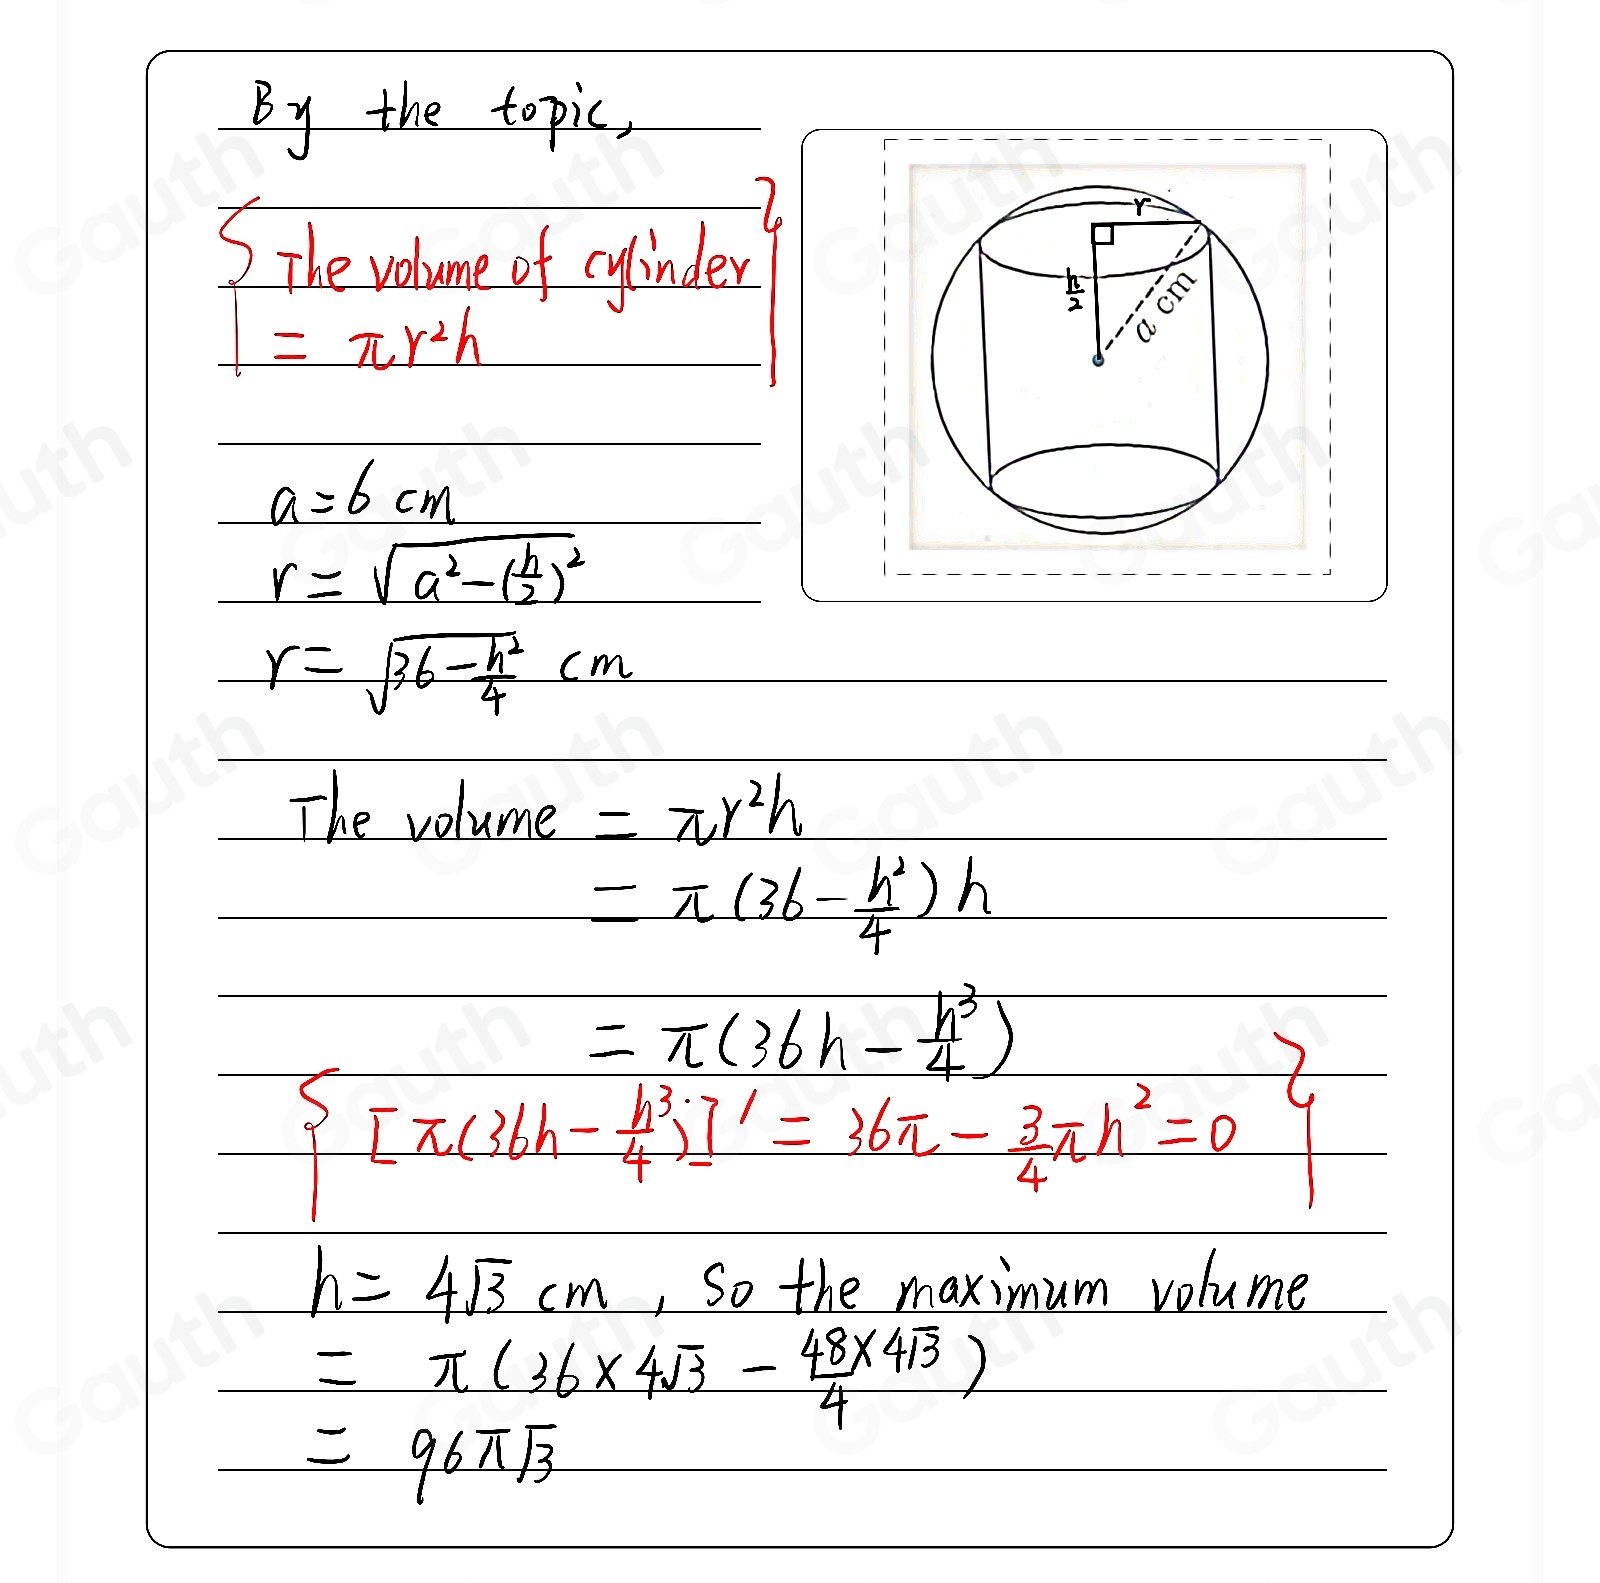 By the topic,
The volume of cylinder
= πr²h
r
h/2
a cm
a=6 cm
r = √(a²-(h/2)²)
r = √(36-h²/4) cm
The volume = πr²h
= π(36-h²/4)h
= π(36h-h³/4)
[π(36h-h³/4)]' = 36π-3/4πh²=0
h= 4√3 cm, So the maximum volume
= π(36×4√3 - 48×4√3/4)
= 96π√3
Gauth